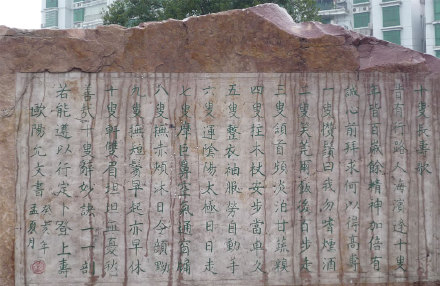 十叟長壽歌
昔有行路人海濱逢十叟
年皆百歲餘精神加倍有
誠心前拜求何以得高壽
一叟撚鬚曰我勿嗜煙酒
二叟笑莞爾飯後百步走
三叟頷首頻淡泊甘蔬糗
四叟拄木杖安步當車久
五叟整衣袖服勞自動手
六叟運陰陽太極日日走
七叟摩巨鼻空氣通窗牖
八叟撫赤頰沐日令顏黝
九叟撫短鬢早起亦早休
十叟軒雙眉坦坦無憂愁
善哉十叟辭妙訣一一剖
若能遵以行定卜登上壽
歐陽允文書
癸亥年
孟夏月